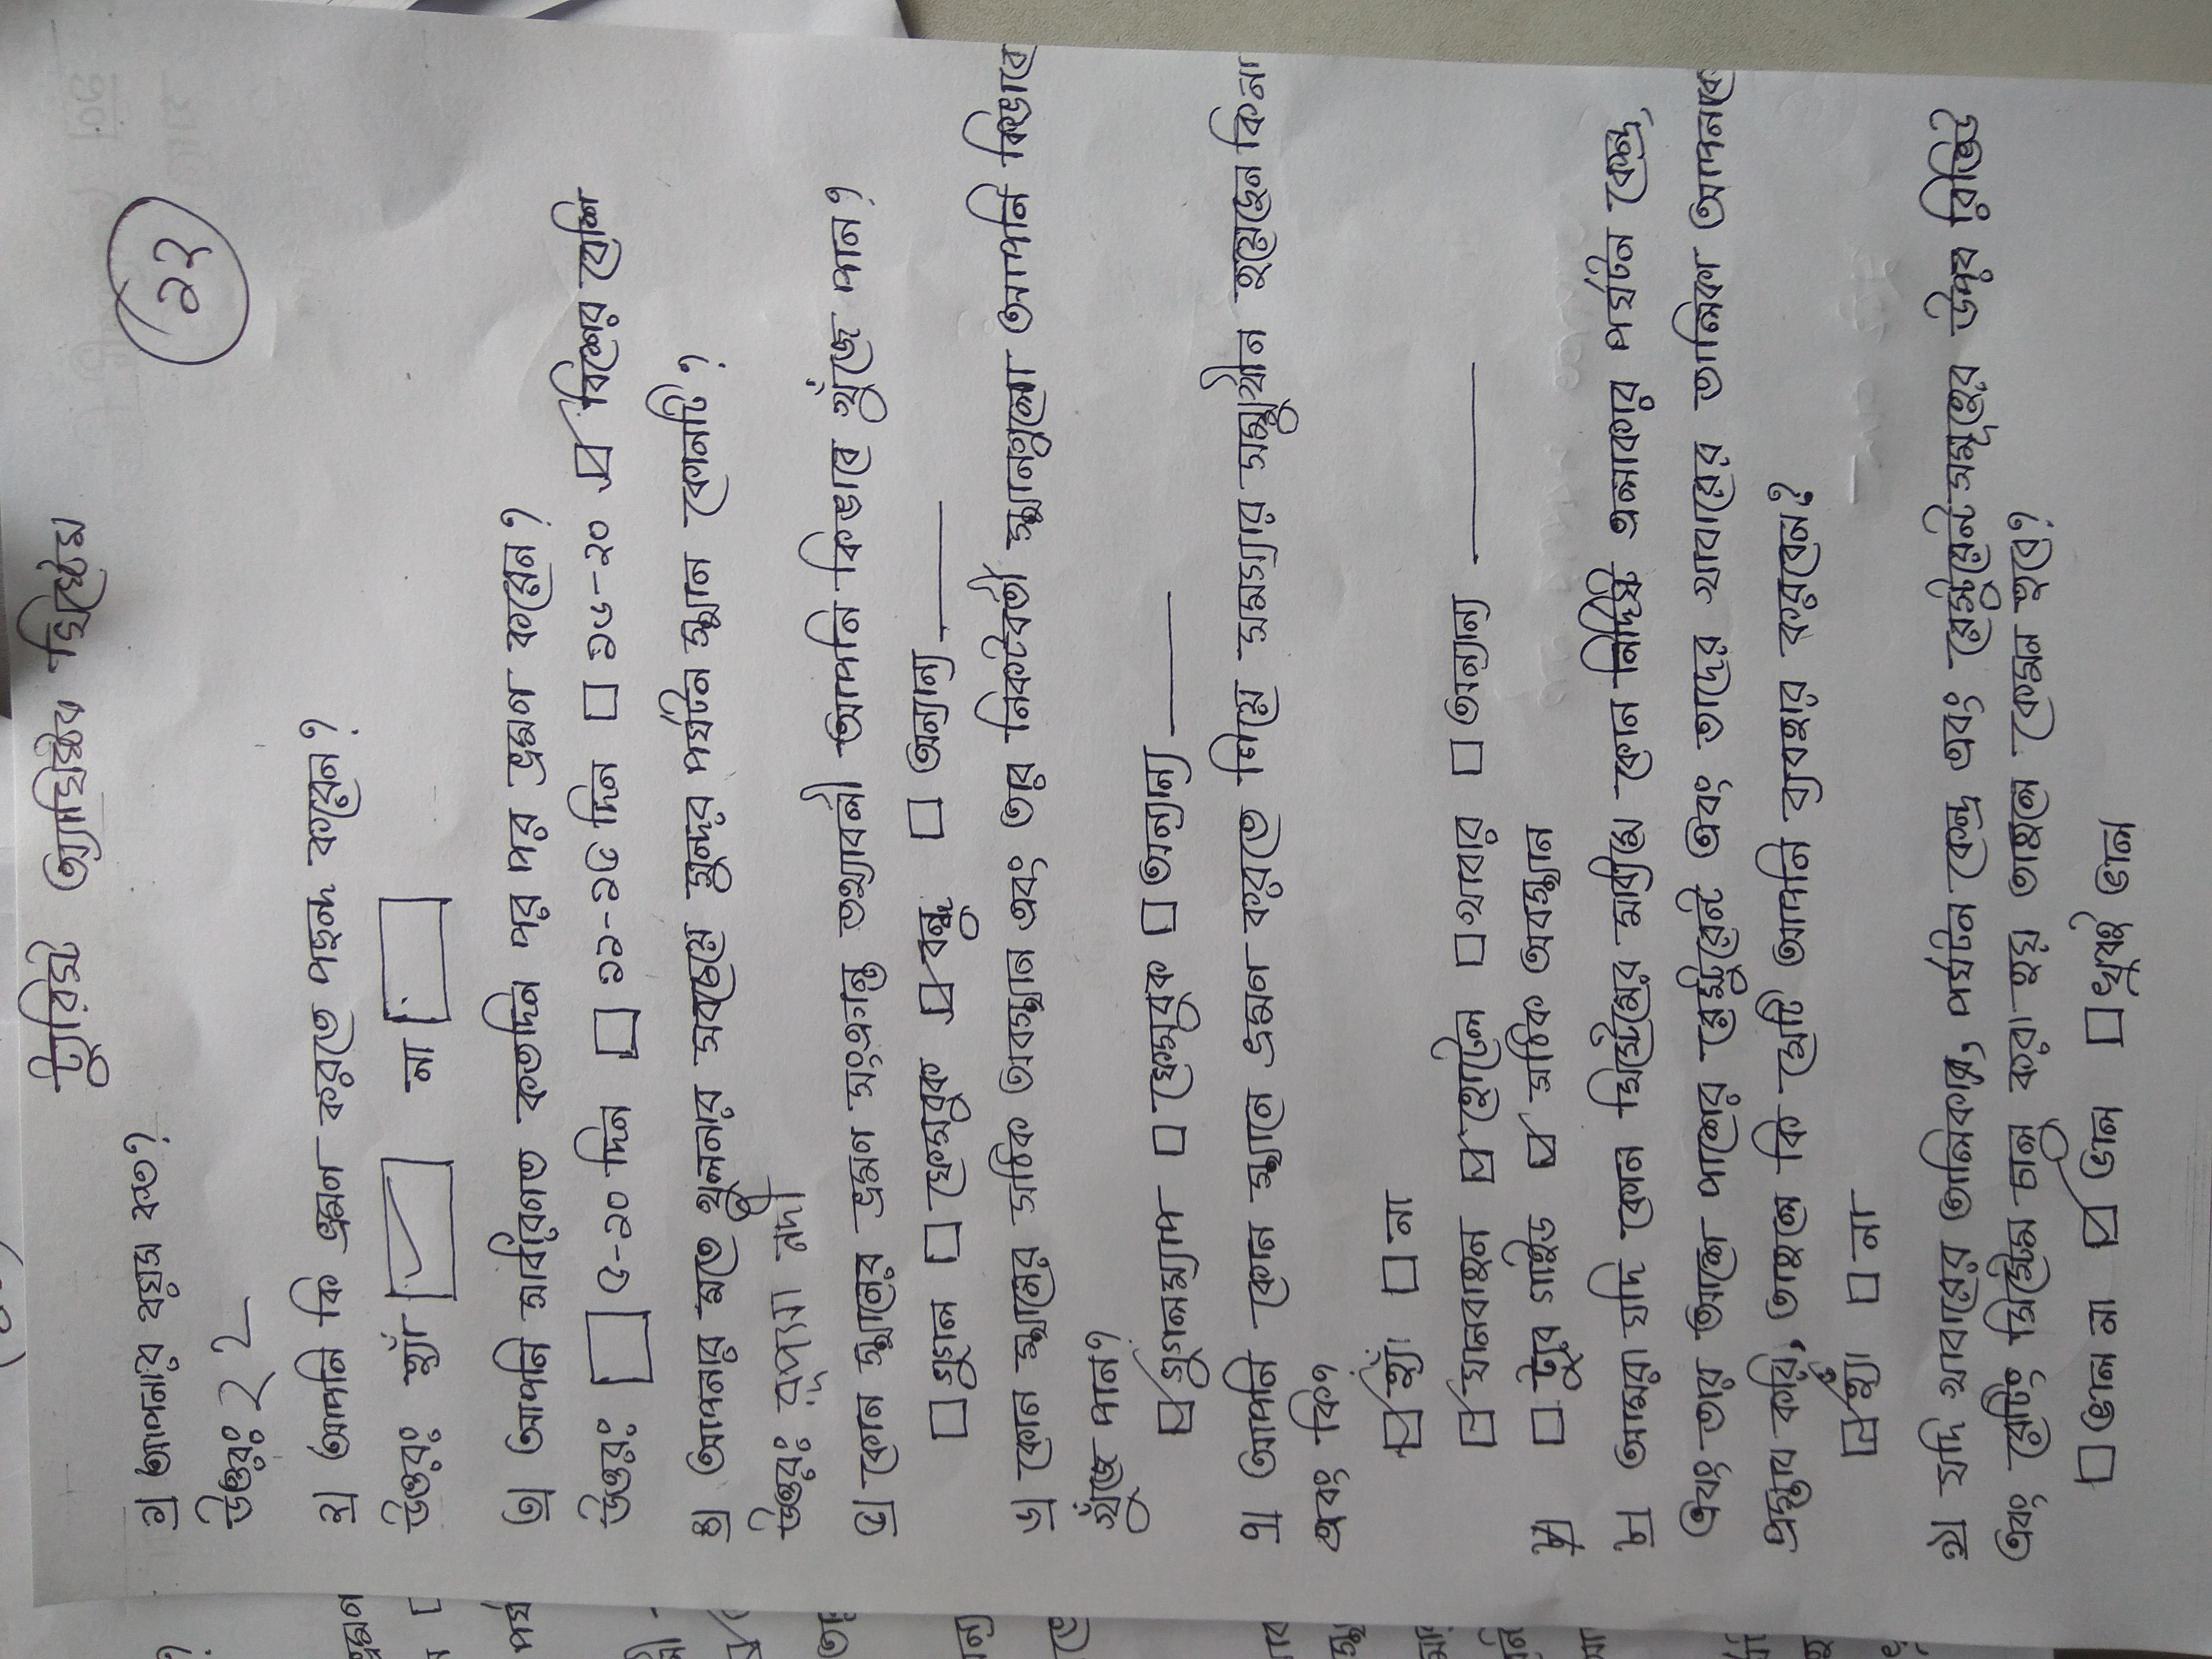 ট্যুরিস্ট অ্যাসিস্ট সিস্টেম
১২
১) আপনার বয়স কত?
উত্তরঃ 22
২) আপনি কি ভ্রমণ করতে পছন্দ করেন?
উত্তরঃ হ্যাঁ না
৩) আপনি সাধারণত কতদিন পর পর ভ্রমণ করেন?
উত্তরঃ ৫-১০ দিন ১১-১৫ দিন ১৫-২০ বিশের বেশি
৪) আপনার মতে খুলনার সবচেয়ে সুন্দর পর্যটন স্থান কোনটি?
উত্তরঃ রূপসা নদী
৫) কোন স্থানের ভ্রমন সংক্রান্ত তথ্যাবলী আপনি কিভাবে খুঁজে পান?
গুগল ফেসবুক বন্ধু অন্যান্য
৬) কোন স্থানের সঠিক অবস্থান এবং তার নিকটবর্তী স্থানগুলো আপনি কিভাবে
খুঁজে পান?
গুগলম্যাপ ফেসবুক অন্যান্য
৭) আপনি কোন স্থানে ভ্রমন করতে গিয়ে সমস্যার সম্মুখীন হয়েছেন কিনা
এবং কি?
হ্যাঁ না
যানবাহন হোটেল খাবার অন্যান্য
ট্যুর গাইড সঠিক অবস্থান
৮) আমরা যদি কোন সিস্টেমের মাধ্যমে কোন নির্দিষ্ট এলাকার পর্যটন কেন্দ্র,
এবং তার আশে পাশের রেস্টুরেন্ট এবং তাদের খাবারের তালিকা আপনাকে
প্রস্তুাব করি, তাহলে কি সেটি আপনি ব্যবহার করবেন?
হ্যাঁ না
৯) যদি খাবারের তালিকায়, পর্যটন কেন্দ্র এবং রেস্টুরেন্টসমূহের উপর রিভিউ
এবং রেটিং সিস্টেম চালু করা হয় তাহলে কেমন হবে?
ভাল না ভাল খুবই ভাল